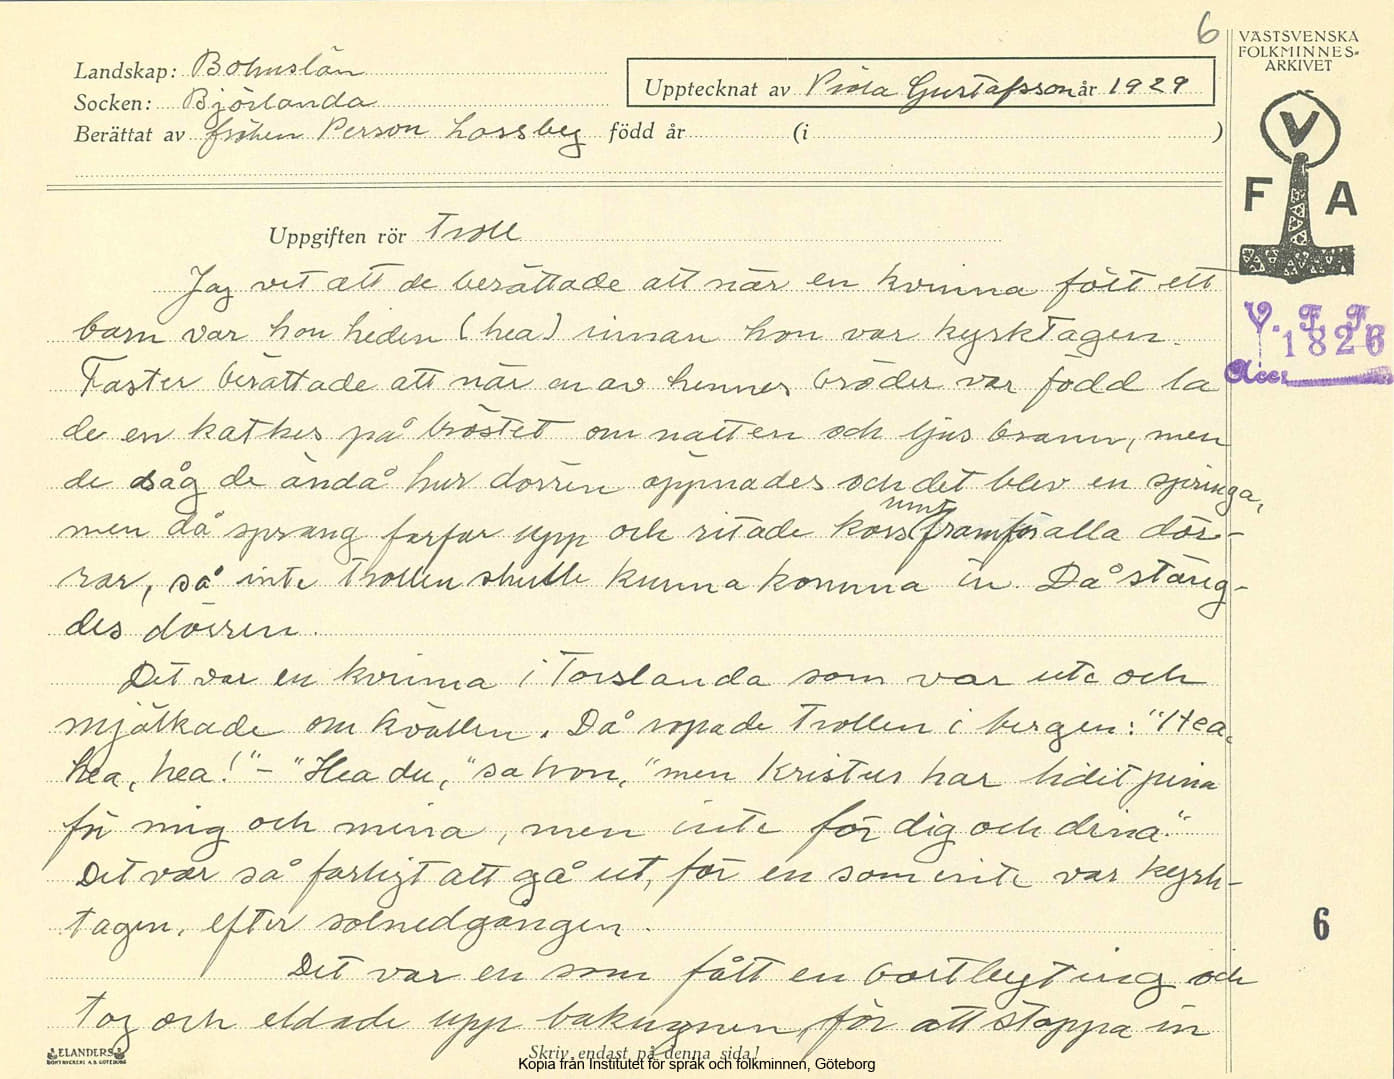 6
VÄSTSVENSKA
FOLKMINNES-
ARKIVET
Landskap: Bohuslän
Socken: Björlanda
Upptecknat av Viola Gustafsson år 1929
Berättat av fröken Person Lossbey född år (i )
V
F A
Uppgiften rör Troll
Jag vet att de berättade att när en kvinna fött ett
barn var hon heden (hea) innan hon var kyrktagen.
V. F. F.
1826
Acc.
Faster berättade att när en av hennes bröder var född la
de en katkes på bröstet om natten och ljus brann, men
de såg de ändå hur dörren öppnades och det blev en springa,
men då sprang farfar upp och ritade kors runt framför alla dör-
rar, så inte trollen skulle kunna komma in. Då stäng-
des dörren.
Det var en kvinna i Torslanda som var ute och
mjölkade om kvällen. Då ropade trollen i bergen: "Hea,
hea, hea!" - "Hea du," sa hon, "men Kristus har lidit pina
för mig och mina, men inte för dig och dina."
Det var så farligt att gå ut, för en som inte var kyrk-
tagen, efter solnedgången.
6
Det var en som fått en bortbyting och
tog och eldade upp bakugnen för att stoppa in
ELANDERS
BOKTRYCKERI A.B. GÖTEBORG
Skriv endast på denna sida!
Kopia från Institutet för språk och folkminnen, Göteborg